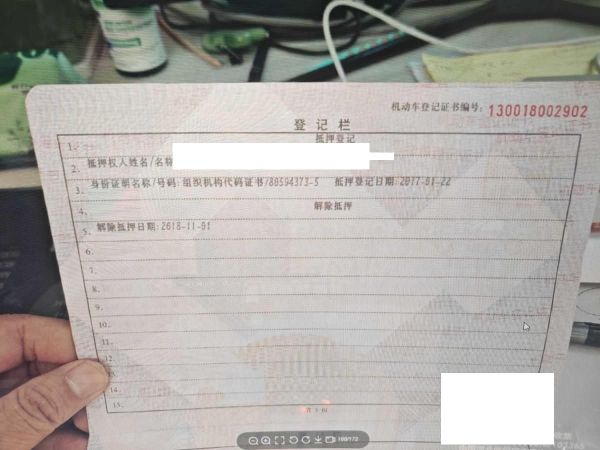 机动车登记证书编号: 130018002902
登记栏
1. 抵押登记
2. 抵押权人姓名/名称
3. 身份证明名称/号码:组织机构代码证书/80594373-5 抵押登记日期:2017-01-22
4. 解除抵押
5. 解除抵押日期:2018-11-01
6.
7.
8.
9.
10.
11.
12.
13.
14.
15.
160/172